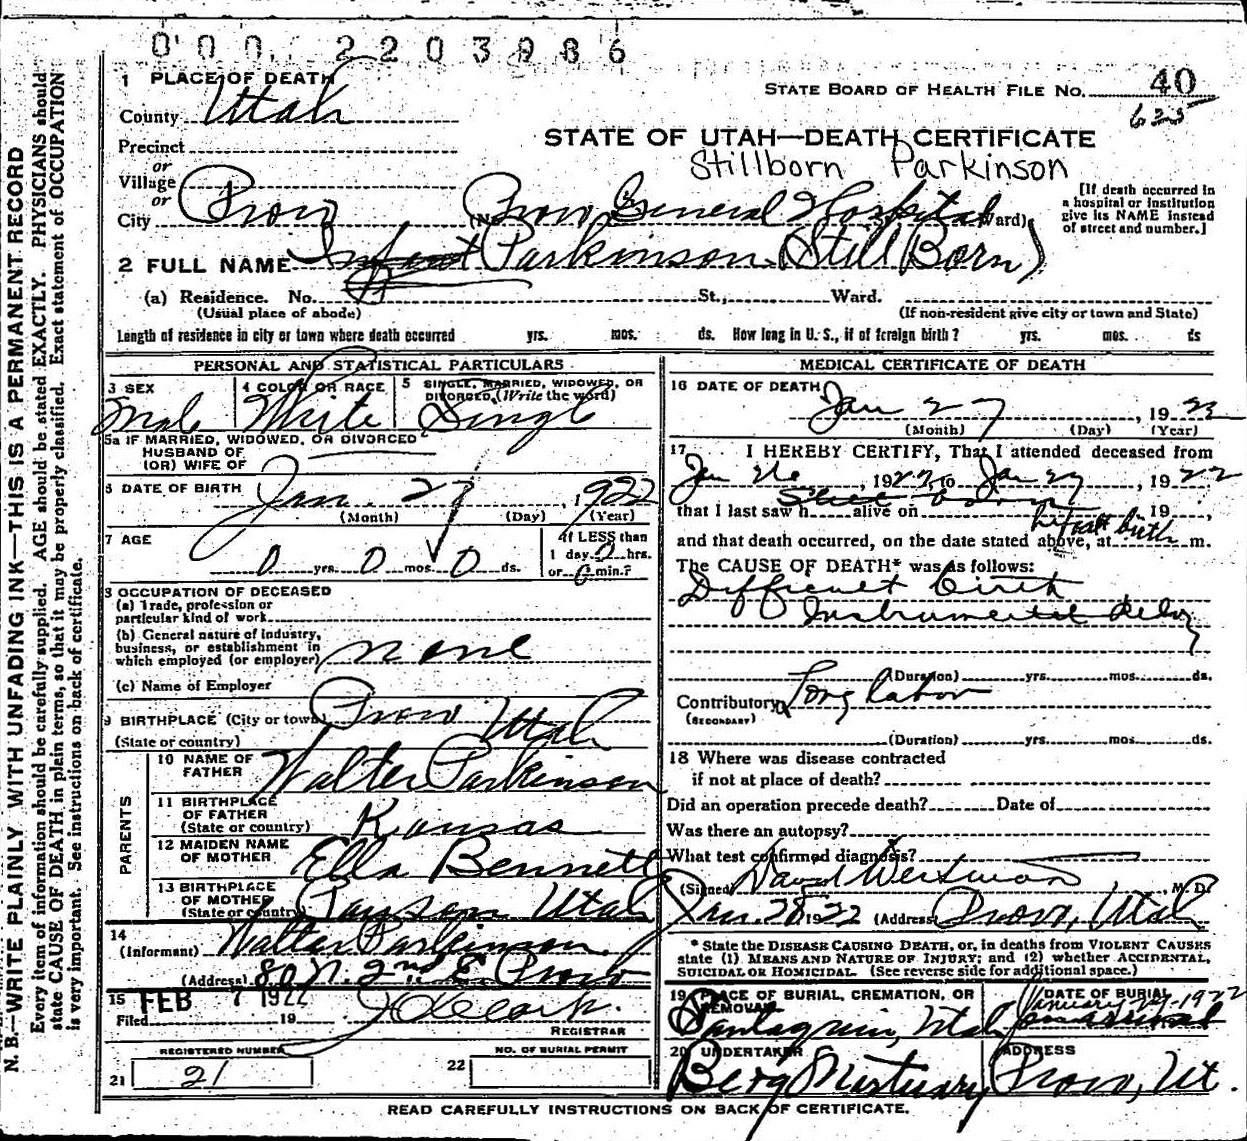 000. 2203986
1 PLACE OF DEATH
STATE BOARD OF HEALTH FILE NO. 40
County Utah
635
STATE OF UTAH—DEATH CERTIFICATE
Precinct
Stillborn Parkinson
or
Village
or
City Provo (No. Provo General Hospital St., Ward)
[If death occurred in
a hospital or institution
give its NAME instead
of street and number.]
2 FULL NAME Infant Parkinson (Still Born)
(a) Residence. No. St., Ward.
(Usual place of abode) (If non-resident give city or town and State)
Length of residence in city or town where death occurred yrs. mos. ds. How long in U. S., if of foreign birth? yrs. mos. ds
PERSONAL AND STATISTICAL PARTICULARS
3 SEX 4 COLOR OR RACE 5 SINGLE, MARRIED, WIDOWED, OR
DIVORCED, (Write the word)
Male White Single
5a IF MARRIED, WIDOWED, OR DIVORCED
HUSBAND OF
(OR) WIFE OF
6 DATE OF BIRTH Jan. 27, 1922
(Month) (Day) (Year)
7 AGE If LESS than
1 day 0 hrs.
0 yrs. 0 mos. 0 ds. or 0 min.?
8 OCCUPATION OF DECEASED
(a) Trade, profession or
particular kind of work
(b) General nature of industry,
business, or establishment in
which employed (or employer) none
(c) Name of Employer
9 BIRTHPLACE (City or town) Provo
(State or country) Utah
PARENTS
10 NAME OF
FATHER Walter Parkinson
11 BIRTHPLACE
OF FATHER
(State or country) Kansas
12 MAIDEN NAME
OF MOTHER Ella Bennett
13 BIRTHPLACE
OF MOTHER
(State or country) Payson Utah
14
(Informant) Walter Parkinson
(Address) 80 N. 2nd E. Provo
15 FEB 7 1922
Filed 19
REGISTRAR
REGISTERED NUMBER NO. OF BURIAL PERMIT
21 21 22
MEDICAL CERTIFICATE OF DEATH
16 DATE OF DEATH
Jan 27, 1922
(Month) (Day) (Year)
17 I HEREBY CERTIFY, That I attended deceased from
Jan 1922, to Jan 27, 1922
that I last saw h alive on 19 ,
and that death occurred, on the date stated above, at birth m.
The CAUSE OF DEATH* was as follows:
Difficult birth
Instrumental
(Duration) yrs. mos. ds.
Contributory Long labor
(SECONDARY)
(Duration) yrs. mos. ds.
18 Where was disease contracted
if not at place of death?
Did an operation precede death? Date of
Was there an autopsy?
What test confirmed diagnosis?
(Signed) David Westwood, M. D.
Jan. 28 1922 (Address) Provo, Utah
* State the DISEASE CAUSING DEATH, or, in deaths from VIOLENT CAUSES
state (1) MEANS AND NATURE OF INJURY; and (2) whether ACCIDENTAL,
SUICIDAL OR HOMICIDAL. (See reverse side for additional space.)
19 PLACE OF BURIAL, CREMATION, OR
REMOVAL
Santaquin, Utah
DATE OF BURIAL
January 27-1922
20 UNDERTAKER ADDRESS
Berg Mortuary Provo, Ut.
READ CAREFULLY INSTRUCTIONS ON BACK OF CERTIFICATE.
N. B.—WRITE PLAINLY WITH UNFADING INK—THIS IS A PERMANENT RECORD
Every item of information should be carefully supplied. AGE should be stated EXACTLY. PHYSICIANS should
state CAUSE OF DEATH in plain terms, so that it may be properly classified. Exact statement of OCCUPATION
is very important. See instructions on back of certificate.